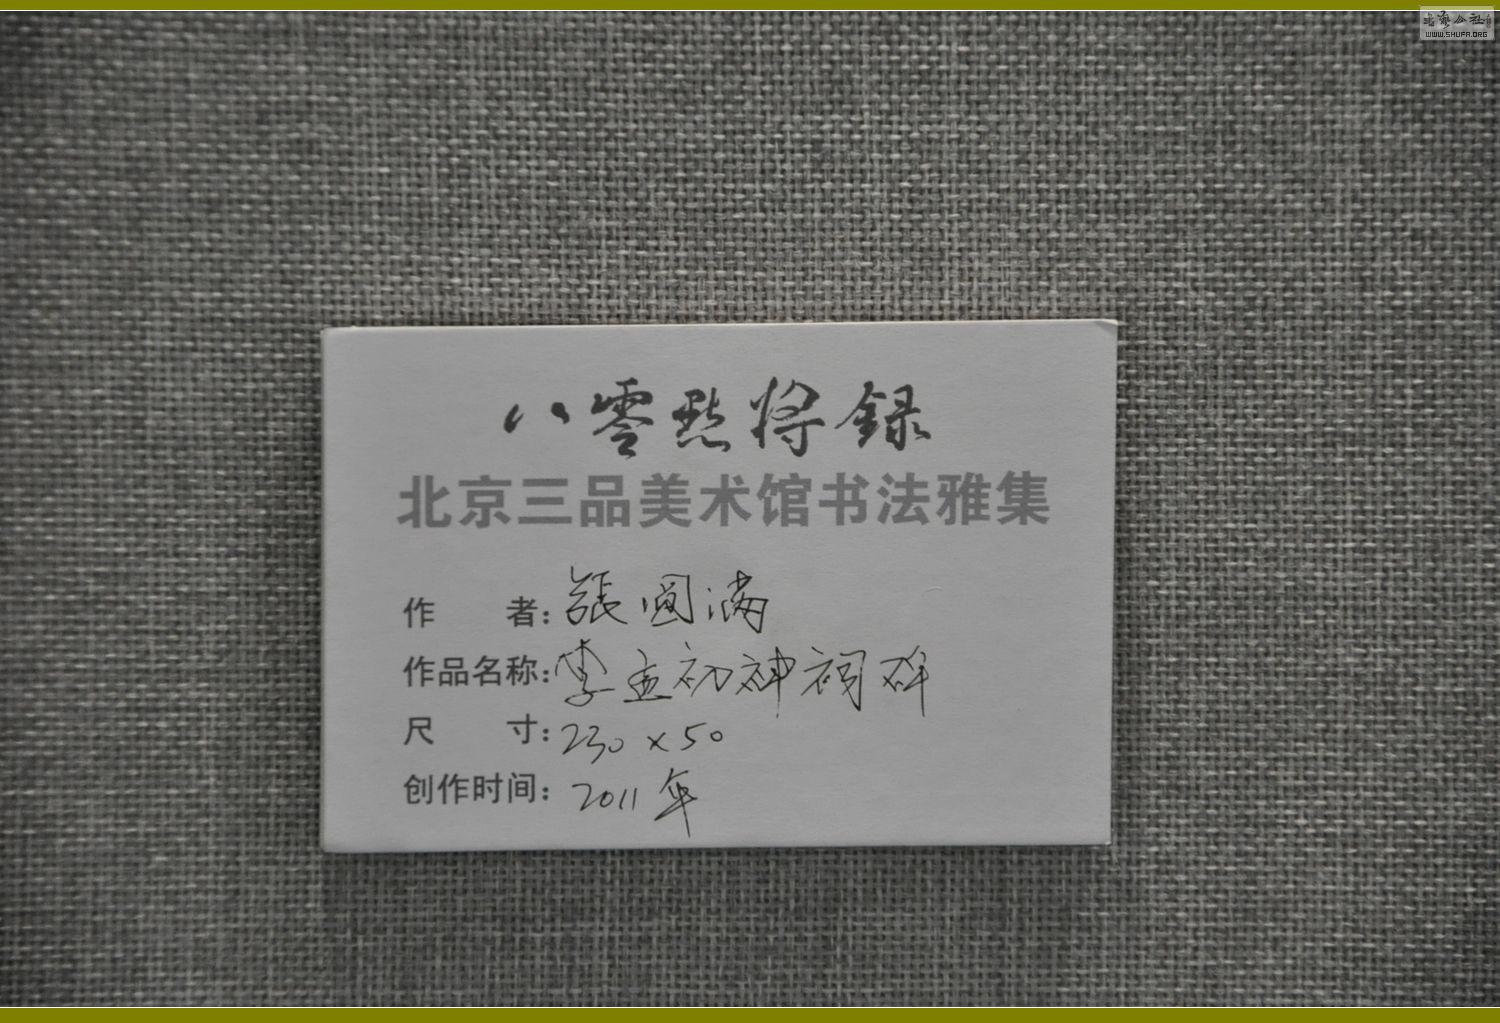 书艺公社
WWW.SHUFA.ORG
八零點将録
北京三品美术馆书法雅集
作 者：張圆满
作品名称：李孟初神祠碑
尺 寸：230×50
创作时间：2011年